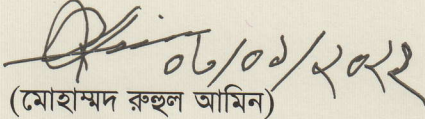 ০৮/০১/২০২২
(মোহাম্মদ রুহুল আমিন)